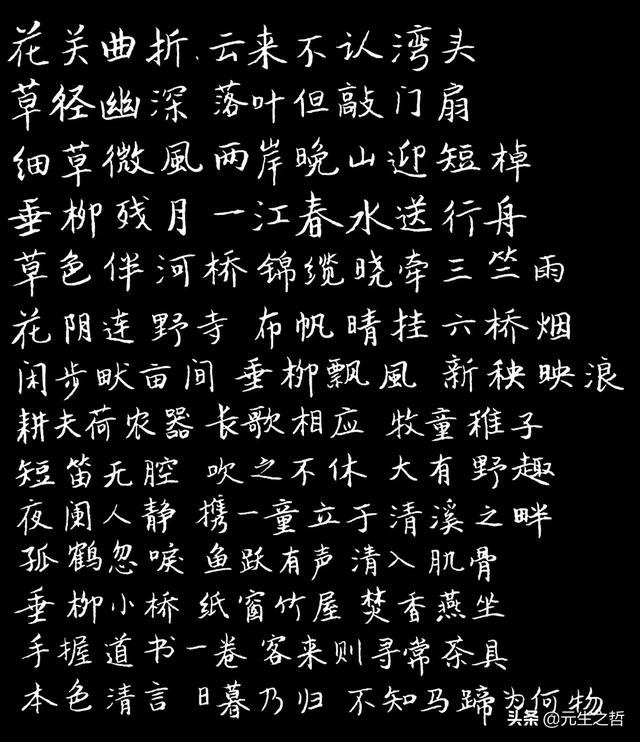 花关曲折,云来不认湾头
草径幽深 落叶但敲门扇
细草微風两岸晚山迎短棹
垂柳残月一江春水送行舟
草色伴河桥锦缆晓牵三竺雨
花阴连野寺 布帆晴挂六桥烟
闲步畎亩间 垂柳飘風 新秧映浪
耕夫荷农器 长歌相应 牧童稚子
短笛无腔 吹之不休 大有野趣
夜阑人静 携一童立于清溪之畔
孤鹤忽唳 鱼跃有声 清入肌骨
垂柳小桥 纸窗竹屋 焚香燕坐
手握道书一卷 客来则寻常茶具
本色清言 日暮乃归 不知马蹄为何物
头条@元生之哲